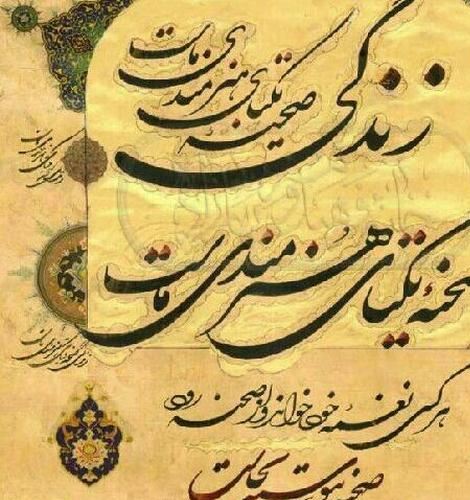 زندگی
صحنه یکتای هنرمندی ماست
صحنهٔ یکتای هنرمندی ماست
هر کسی نغمه خود خواند و از صحنه رود
صحنه پیوسته بجاست